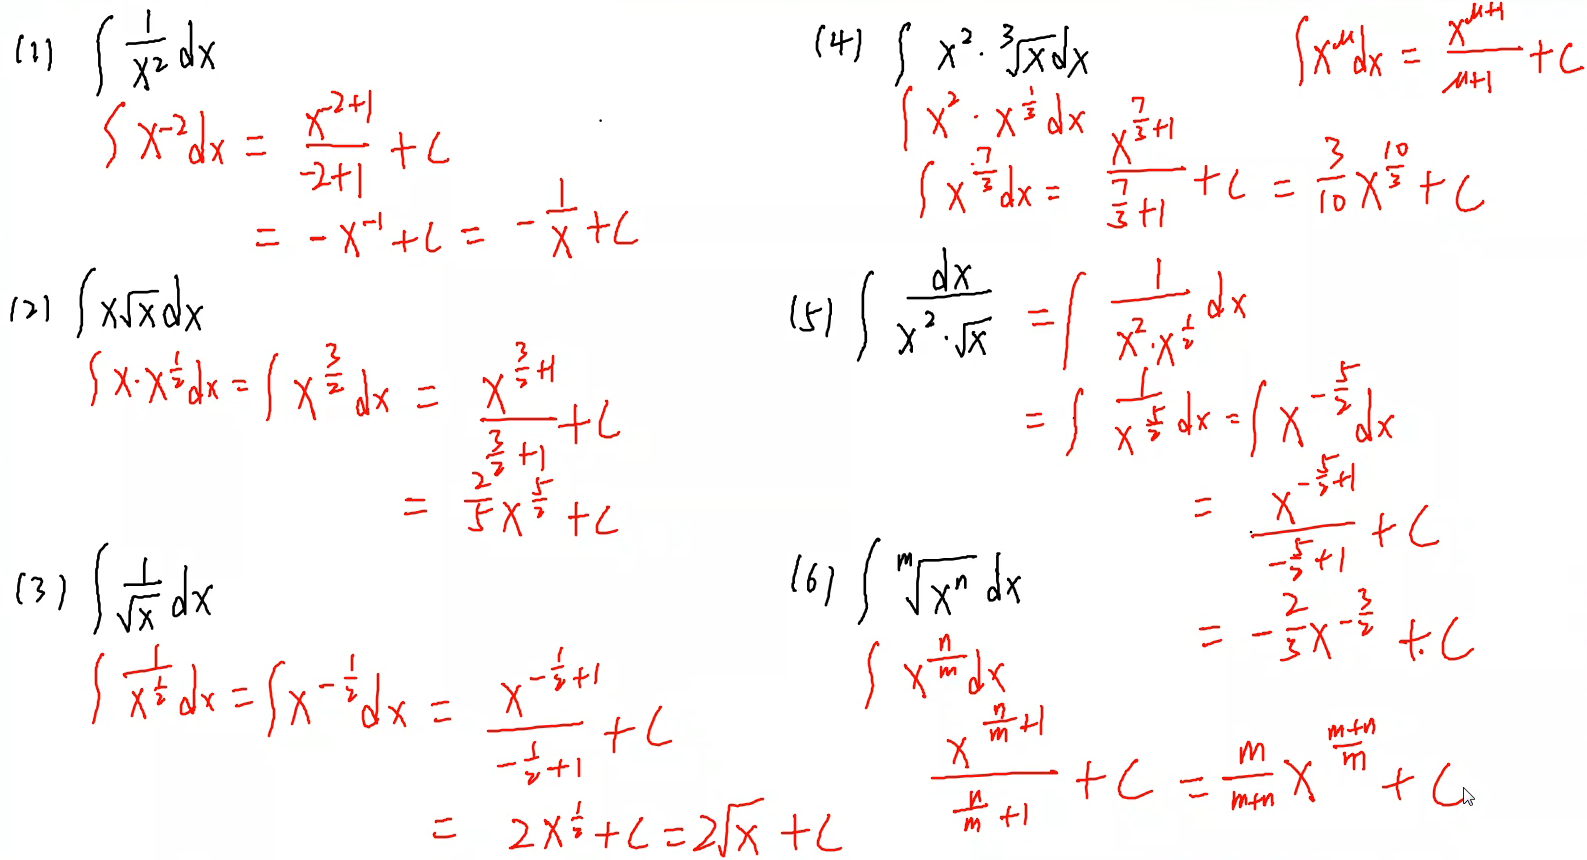 (1) ∫ 1/x² dx
∫ x⁻² dx = x^(-2+1)/(-2+1) + C
= -x⁻¹ + C = -1/x + C
(2) ∫ x√x dx
∫ x·x^(1/2) dx = ∫ x^(3/2) dx = x^(3/2+1)/(3/2+1) + C
= 2/5 x^(5/2) + C
(3) ∫ 1/√x dx
∫ 1/x^(1/2) dx = ∫ x^(-1/2) dx = x^(-1/2+1)/(-1/2+1) + C
= 2x^(1/2) + C = 2√x + C
(4) ∫ x²·³√x dx
∫ x^μ dx = x^(μ+1)/(μ+1) + C
∫ x²·x^(1/3) dx
∫ x^(7/3) dx = x^(7/3+1)/(7/3+1) + C = 3/10 x^(10/3) + C
(5) ∫ dx/(x²·√x) = ∫ 1/(x²·x^(1/2)) dx
= ∫ 1/x^(5/2) dx = ∫ x^(-5/2) dx
= x^(-5/2+1)/(-5/2+1) + C
= -2/3 x^(-3/2) + C
(6) ∫ ᵐ√xⁿ dx
∫ x^(n/m) dx
x^(n/m+1)/(n/m+1) + C = m/(m+n) x^((m+n)/m) + C